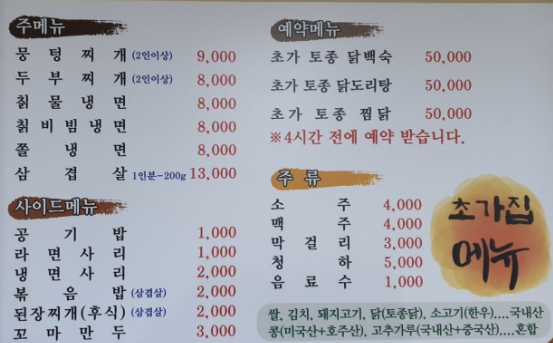 주메뉴
뭉텅찌개 (2인이상) 9,000
두부찌개 (2인이상) 8,000
칡물냉면 8,000
칡비빔냉면 8,000
쫄냉면 8,000
삼겹살 1인분-200g 13,000
사이드메뉴
공기밥 1,000
라면사리 1,000
냉면사리 2,000
볶음밥 (삼겹살) 2,000
된장찌개(후식) (삼겹살) 2,000
꼬마만두 3,000
예약메뉴
초가 토종 닭백숙 50,000
초가 토종 닭도리탕 50,000
초가 토종 찜닭 50,000
※4시간 전에 예약 받습니다.
주류
소주 4,000
맥주 4,000
막걸리 3,000
청하 5,000
음료수 1,000
초가집
메뉴
쌀, 김치, 돼지고기, 닭(토종닭), 소고기(한우)....국내산
콩(미국산+호주산), 고추가루(국내산+중국산)....혼합